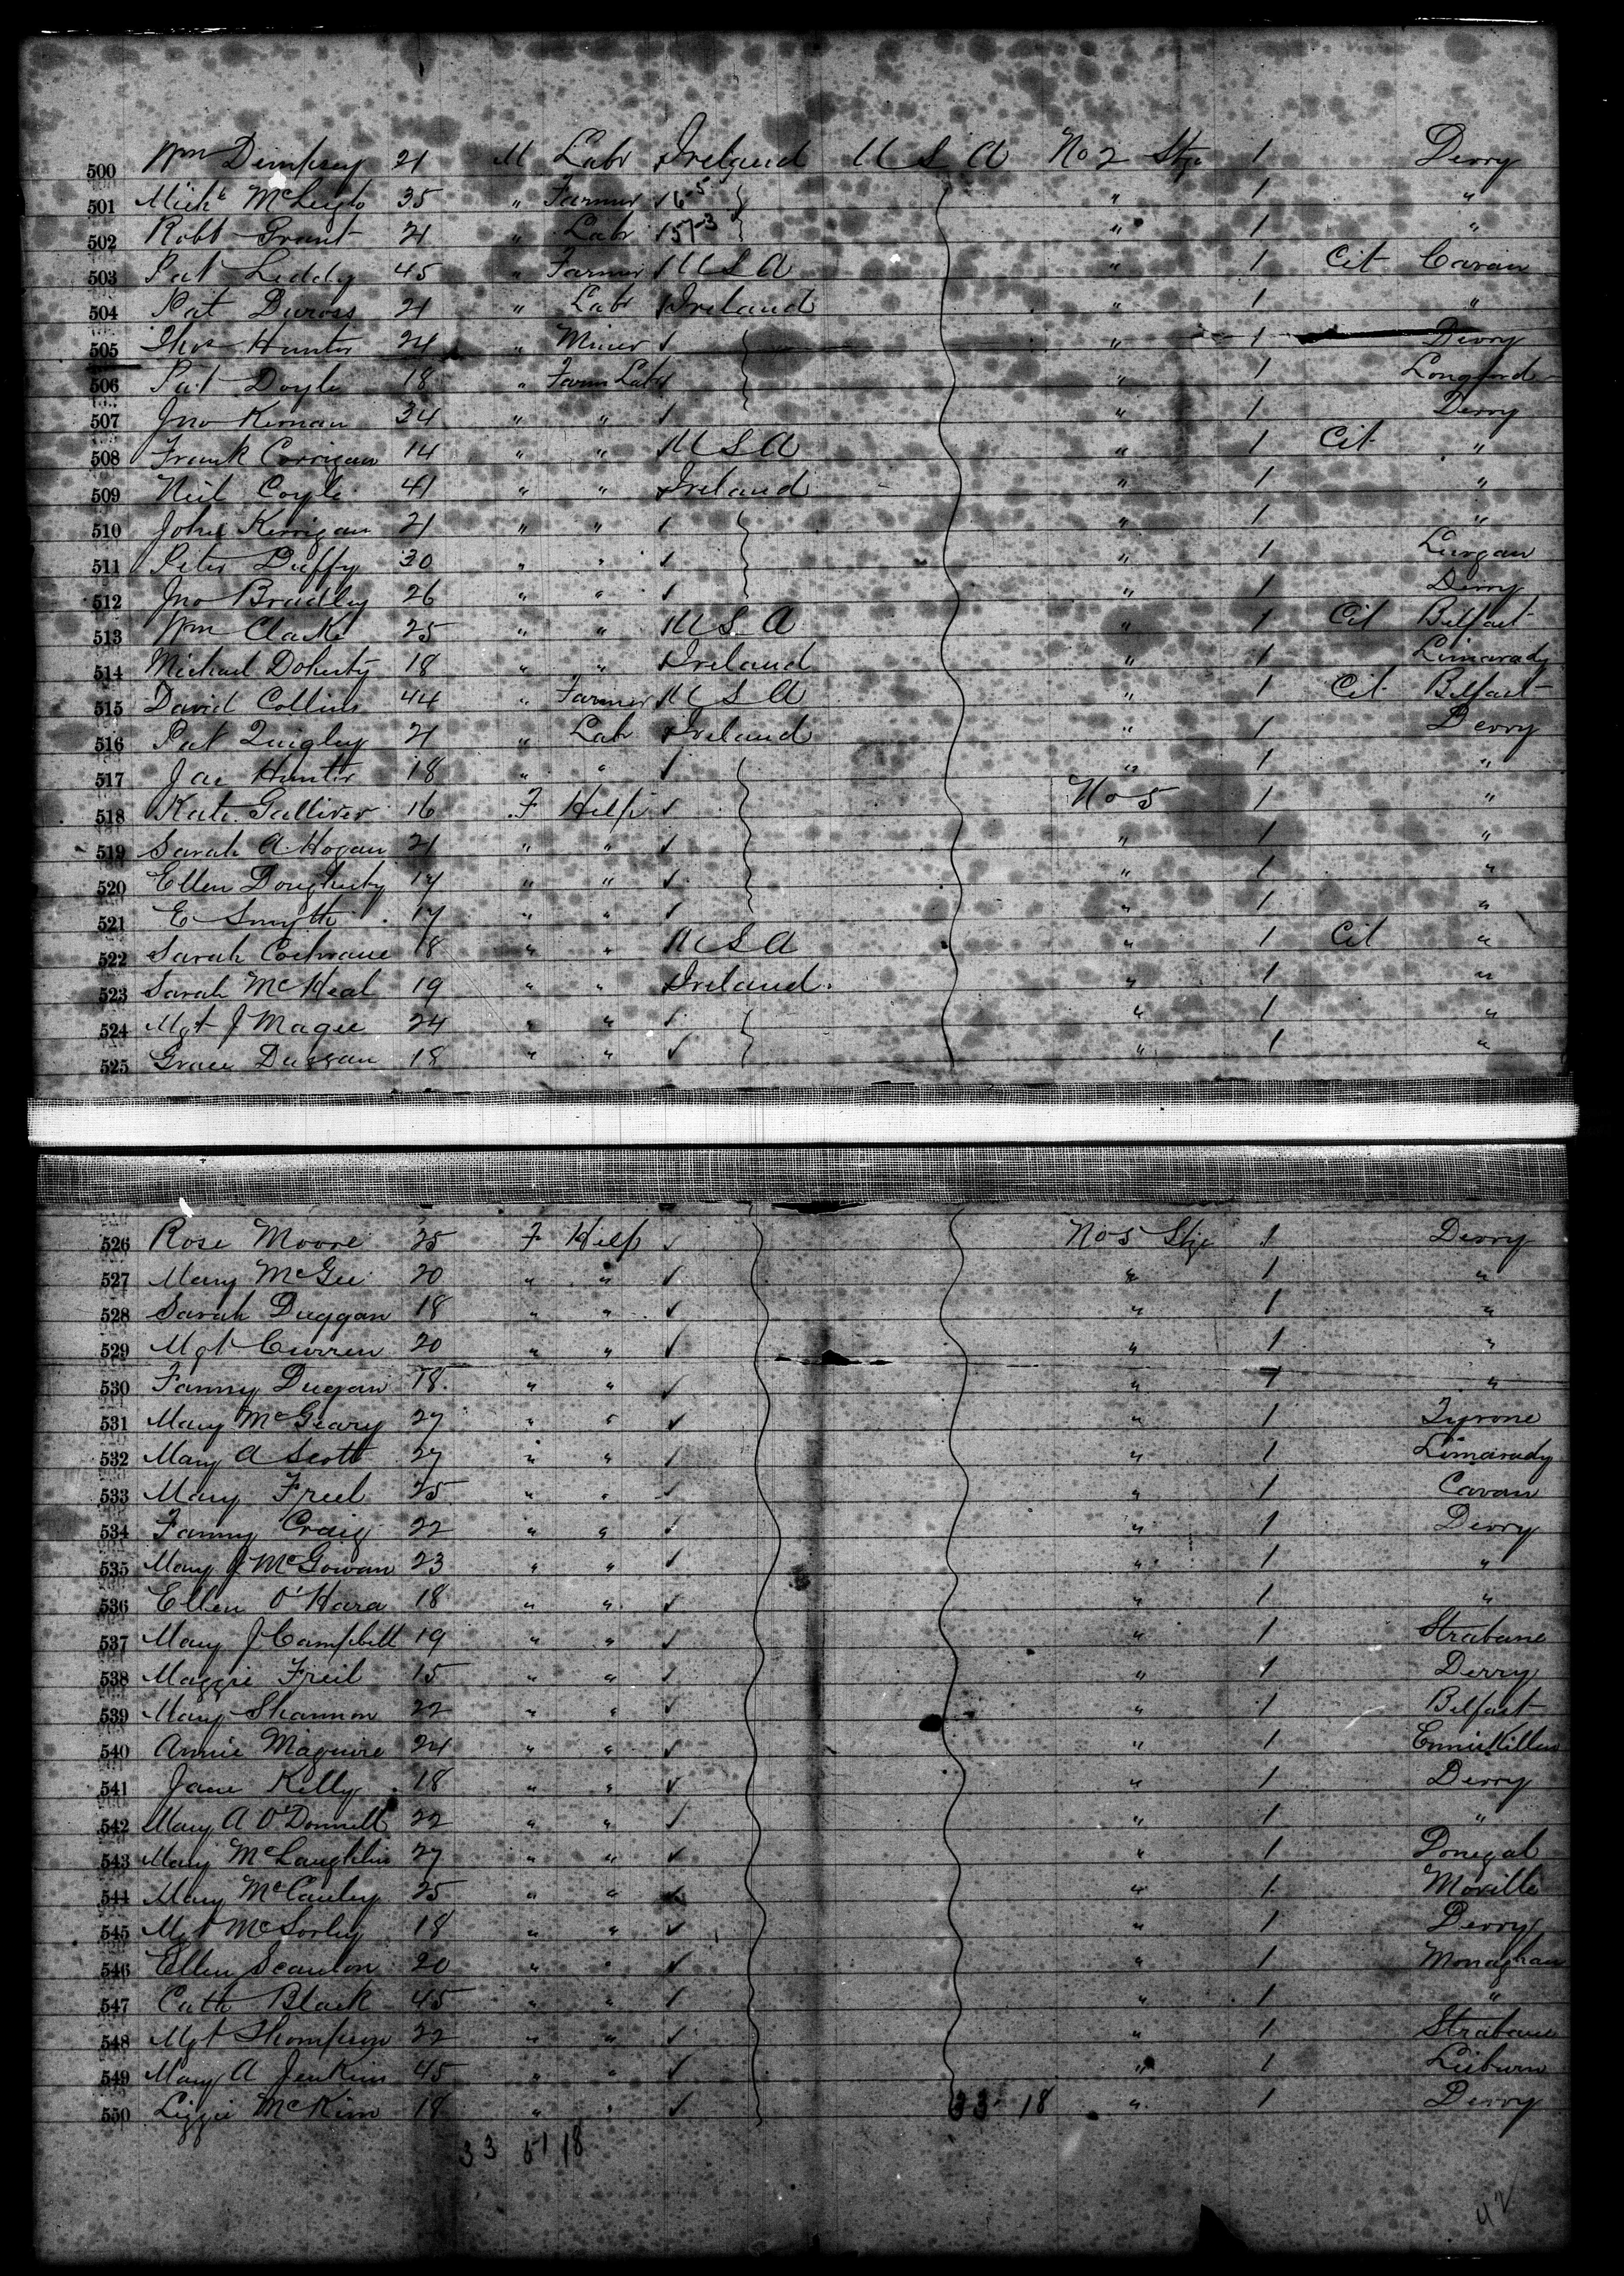 500 Wm Dempsey 21 M Labr Ireland U S A No 2 Stge 1 Derry
501 Michl 35 " Farmer " 1 "
502 Robt Grant 21 " Labr " 1 "
503 Pat Leddy 45 " Farmer U S A " 1 Cit Cavan
504 Pat Duross 21 " Labr Ireland " 1 "
505 Thos Hunter 24 " Miner " 1 Derry
506 Pat Doyle 18 " Farm Labr " 1 Longford
507 Jno Kernan 34 " " " 1 Derry
508 Frank Corrigan 14 " " U S A " 1 Cit "
509 Neil Coyle 41 " " Ireland " 1 "
510 John Kerrigan 21 " " " 1 "
511 Peter Duffy 30 " " " 1 Lurgan
512 Jno Bradley 26 " " " 1 Derry
513 Wm Clarke 25 " " U S A " 1 Cit Belfast
514 Michael Doherty 18 " " Ireland " 1 Limavady
515 David Collins 44 " Farmer U S A " 1 Cit Belfast
516 Pat Quigley 21 " Labr Ireland " 1 Derry
517 Jas Hunter 18 " " " 1 "
518 Kate Galliver 16 F Help No 5 1 "
519 Sarah A. Hogan 21 " " " 1 "
520 Ellen Dougherty 17 " " " 1 "
521 E Smythe 17 " " " 1 "
522 Sarah Cochrane 18 " " U S A " 1 Cit "
523 Sarah McHeal 19 " " Ireland " 1 "
524 Mgt J Magee 24 " " " 1 "
525 Grace Duggan 18 " " " 1 "
526 Rose Moore 25 F Help No 5 Stge 1 Derry
527 Mary McGee 20 " " " 1 "
528 Sarah Duggan 18 " " " 1 "
529 Mgt Curren 20 " " " 1 "
530 Fanny Dugan 18 " " " 1 "
531 Mary McGeary 27 " " " 1 Tyrone
532 Mary A Scott 27 " " " 1 Limavady
533 Mary Freel 25 " " " 1 Cavan
534 Fanny Craig 22 " " " 1 Derry
535 Mary J McGowan 23 " " " 1 "
536 Ellen O'Hara 18 " " " 1 "
537 Mary J Campbell 19 " " " 1 Strabane
538 Maggie Freil 15 " " " 1 Derry
539 Mary Shannon 22 " " " 1 Belfast
540 Annie Maguire 24 " " " 1 Enniskillen
541 Jane Kelly 18 " " " 1 Derry
542 Mary A O'Donnell 22 " " " 1 "
543 Mary McLaughlin 27 " " " 1 Donegal
544 Mary McCauley 25 " " " 1 Moville
545 Mgt McSorley 18 " " " 1 Derry
546 Ellen Scanlon 20 " " " 1 Monaghan
547 Cath Black 45 " " " 1 "
548 Mgt Thompson 22 " " " 1 Strabane
549 Mary A Jenkins 45 " " " 1 Lisburn
550 Lizzie McKim 18 " " 33 18 " 1 Derry
33 51 18
42